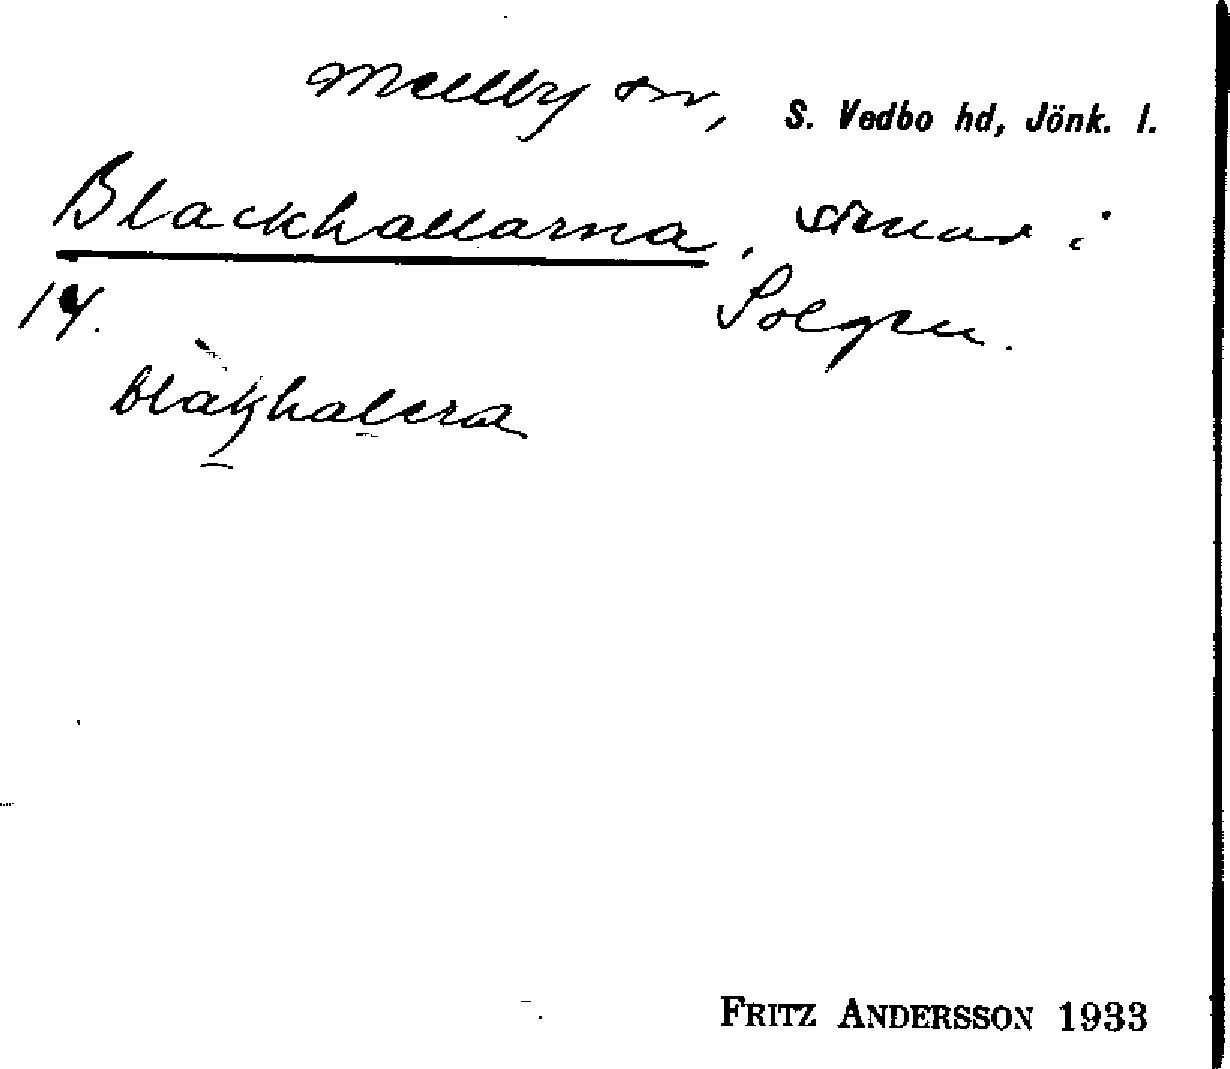 Mellby sn, S. Vedbo hd, Jönk. l.
Blackhallarna, stenar i
14. Solgen.
blàkhalera
FRITZ ANDERSSON 1933